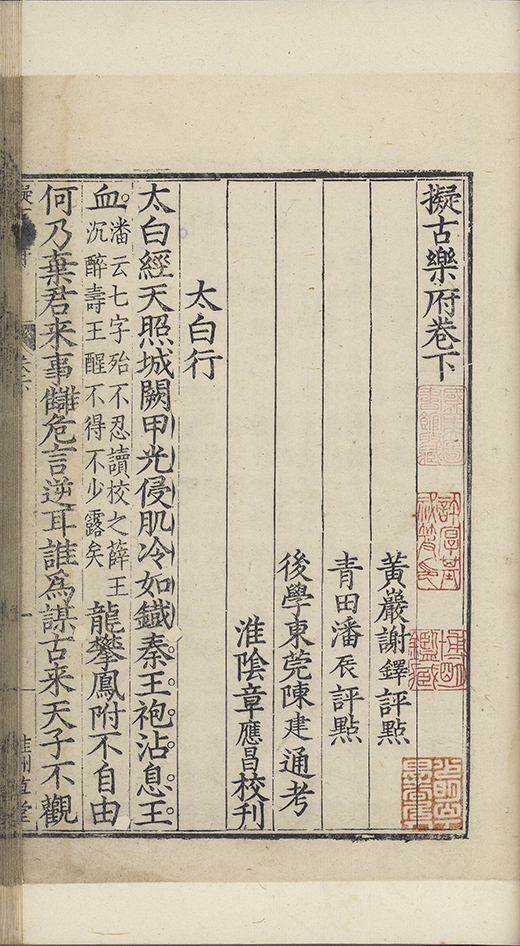 擬古樂府卷下
黃巖謝鐸評點
青田潘辰評點
後學東莞陳建通考
淮陰章應昌校刊
太白行
太白經天照城闕甲光侵肌冷如鐵秦王袍沾息王
血潘云七字殆不忍讀校之薛王
沉醉壽王醒不得不少露矣龍攀鳳附不自由
何乃棄君来事讎危言逆耳誰為謀古来天子不觀